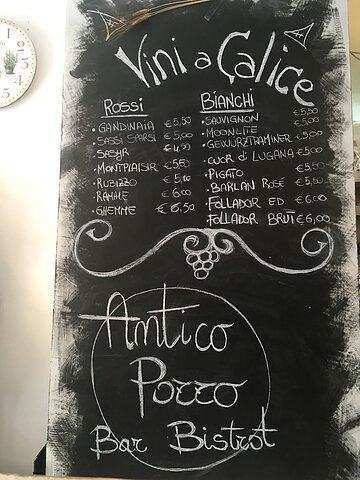 Vini a Calice
Rossi
• GANDINAIA €5,50
• SASSI SPARSI €5,00
• SASYR €4,50
• MONTPLAISIR €5,50
• RUBIZZO €5,00
• RAMALE €6,00
• GHEMME €6,50
BIANCHI
• SAUVIGNON €5,50
• MOONLITE €5,00
• GEWURZTRAMINER €5,00
• CUOR di LUGANA €5,00
• PIGATO €5,50
• BARLAN ROSE €5,50
• FOLLADOR ED €6,00
• FOLLADOR BRUT €6,00
Antico
Pozzo
Bar Bistrot